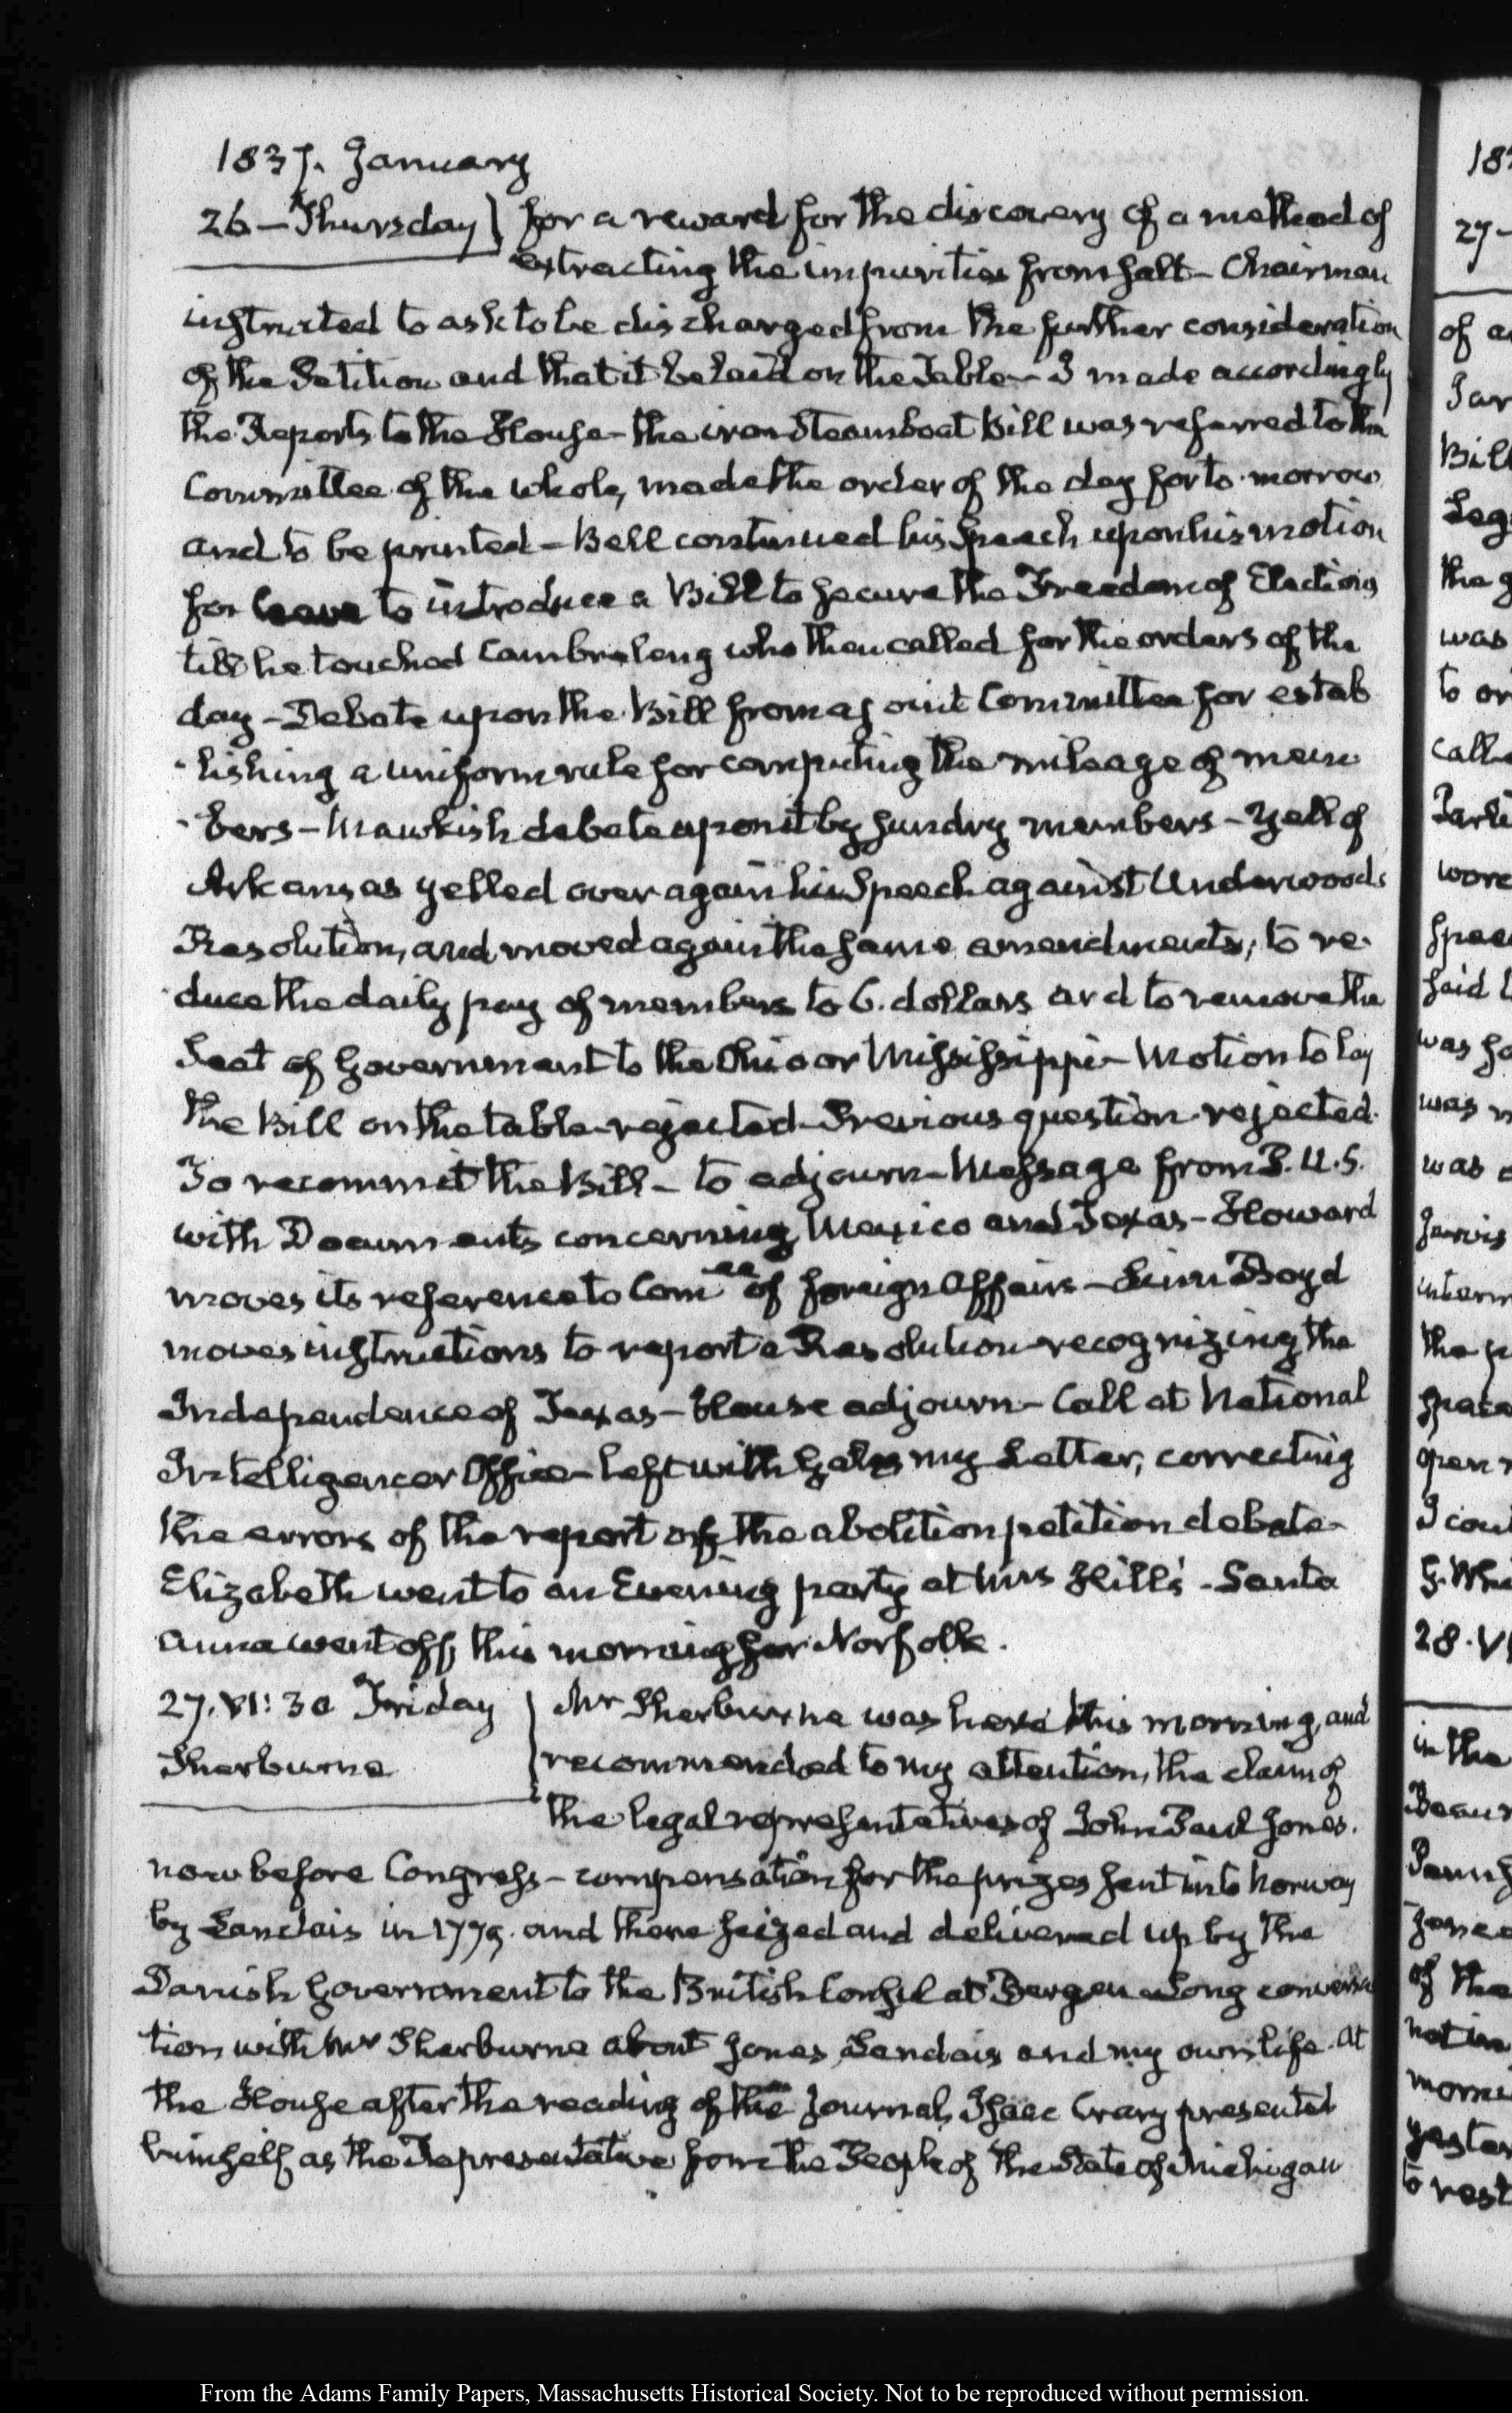 1837. January
26 – Thursday } for a reward for the discovery of a method of
extracting the impurities from salt – Chairman
instructed to ask to be discharged from the further consideration
of the Petition and that it be laid on the Table – I made accordingly
the Reports to the House – the iron Steamboat Bill was referred to the
Committee of the whole, made the order of the day for to-morrow
and to be printed – Bell continued his Speech upon his motion
for leave to introduce a Bill to secure the Freedom of Elections
till he touched Cambreleng who then called for the orders of the
day – Debate upon the Bill from a joint Committee for estab
-lishing a uniform rule for computing the mileage of mem
-bers – Mawkish debate upon it by sundry members – Yell of
Arkansas yelled over again his Speech against Underwood's
Resolution, and moved again the same amendments, to re-
-duce the daily pay of members to 6. dollars and to remove the
Seat of Government to the Ohio or Mississippi – Motion to lay
the Bill on the table rejected – Previous question rejected.
To recommit the Bill – to adjourn – Message from P. U. S.
with Documents concerning Mexico and Texas – Howard
moves its reference to Comee of foreign Affairs – Linn Boyd
moves instructions to report a Resolution recognizing the
Independence of Texas – House adjourn – Call at National
Intelligencer Office – left with Gales my Letter, correcting
the errors of the report of the abolition petition debate –
Elizabeth went to an Evening party at Mrs Hill's – Santa
Anna went off, this morning for Norfolk.
27. VI: 30 Friday } Mr Sherburne was here this morning, and
Sherburne recommended to my attention, the claim of
the legal representatives of John Paul Jones.
now before Congress – compensation for the prizes sent into Norway
by Landais in 1779. and there seized and delivered up by the
Danish Government to the British Consul at Bergen – Long conversa
tion with Mr Sherburne about Jones, Landais and my own life. At
the House after the reading of the Journal, Isaac Crary presented
himself as the Representative from the People of the State of Michigan
183
27-
of a
Bill
the g
was
to or
call
was
was
was
Jarvis
the p
open
I cou
28. VI
in the
of the
to rest
From the Adams Family Papers, Massachusetts Historical Society. Not to be reproduced without permission.